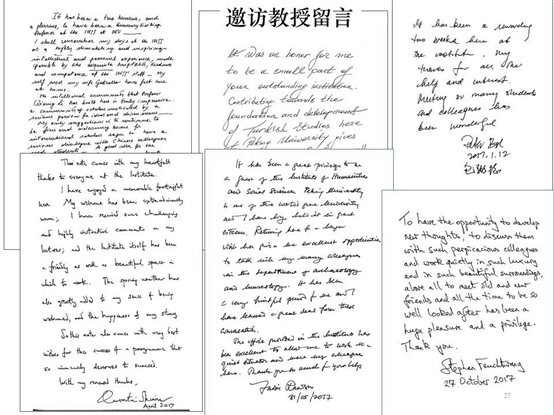 邀访教授留言
It has been a true honour, and
a pleasure, to have been a Humanities Visiting
Professor at the IHSS at PKU
I shall remember my days at the IHSS
as a highly stimulating and inspiring
intellectual and personal experience, made
possible by the exquisite hospitality, kindness
and competence of the IHSS staff. My
wife and my
at home.
The intellectual community that Professor
has built here is truly impressive,
a community of scholars motivated by a
serious passion for ideas and discussions.
My only suggestion is to continue to
be firm and welcoming
international scholars eager to have a
serious dialogue with Chinese colleagues
and students. A good idea for the
It was an honor for me
to be a small part of
your outstanding institution.
Contributing towards the
foundation and development
of Turkish Studies here
at Peking University gives
It has been a rewarding
two weeks here at
the institution. My
thanks for all the
help and interest.
Meeting so many students
and colleagues has
been wonderful
Peter Bol
2017.1.12
This note comes with my heartfelt
thanks to everyone at the Institute.
I have enjoyed a memorable fortnight
here. My welcome has been extraordinarily
warm; I have received some challenging
and highly instructive comments on my
lectures; and the Institute itself has been
as friendly as well as beautiful space in
which to work. The spring weather has
also greatly added to my sense of being
welcomed, and the happiness of my stay.
So this note also comes with my best
wishes for the success of a programme that
so sincerely deserves to succeed.
With my renewed thanks,
Quentin Skinner
April 2017
It has been a great privilege to be
a guest of the Institute of Humanities
and Social Sciences. Peking University
is one of the world's great Universities
and I have long held it in great
esteem. Returning here for a longer
visit has given me excellent opportunities
to talk with my many colleagues
in the department of archaeology
and museology. It has been
a very fruitful period for me and I
have learned a great deal from these
conversations.
The office provided in the Institute has
been excellent to allow me to work in a
quiet situation and meet my colleagues
here. Thank you so much for your help
Jessica Rawson
31/05/2017
To have the opportunity to develop
new thoughts, to discuss them
with such perspicacious colleagues
and work quietly in such luxury
and in such beautiful surroundings,
above all to meet old and new
friends and all the time to be so
well looked after has been a
huge pleasure and a privilege.
Thank you.
Stephan Feuchtwang
27 October 2017
27